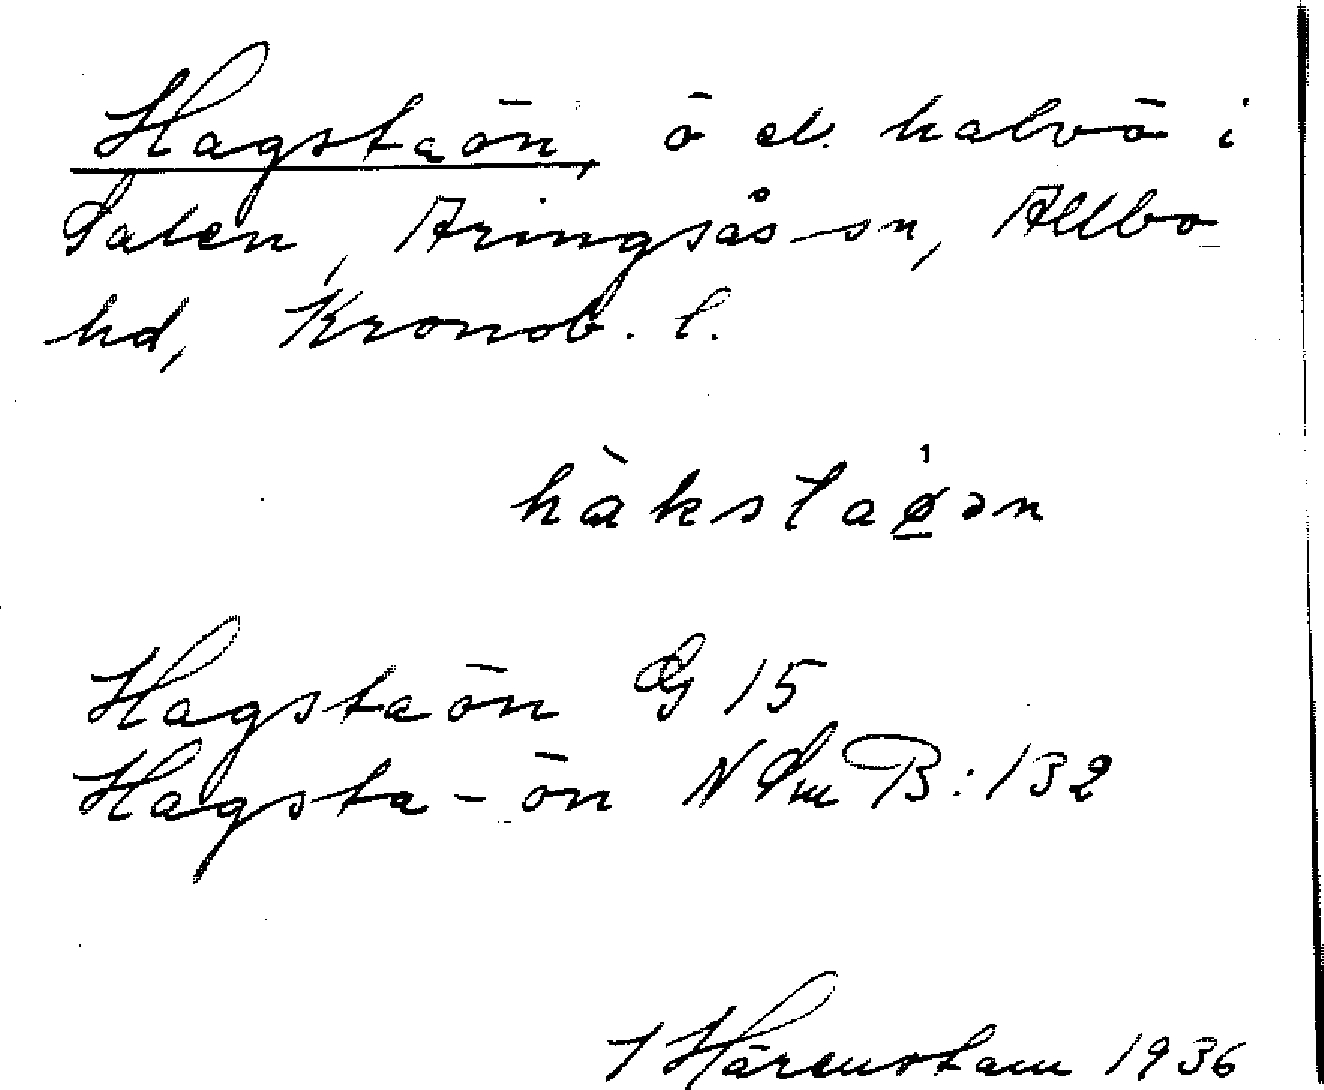 Hagstaön, ö el. halvö i
Salen, Aringsås sn, Allbo
hd, Kronob. l.
hàkstaǿ̱ən
Hagstaön G 15
Hagsta-ön N Sm B:132
J Härenstam 1936